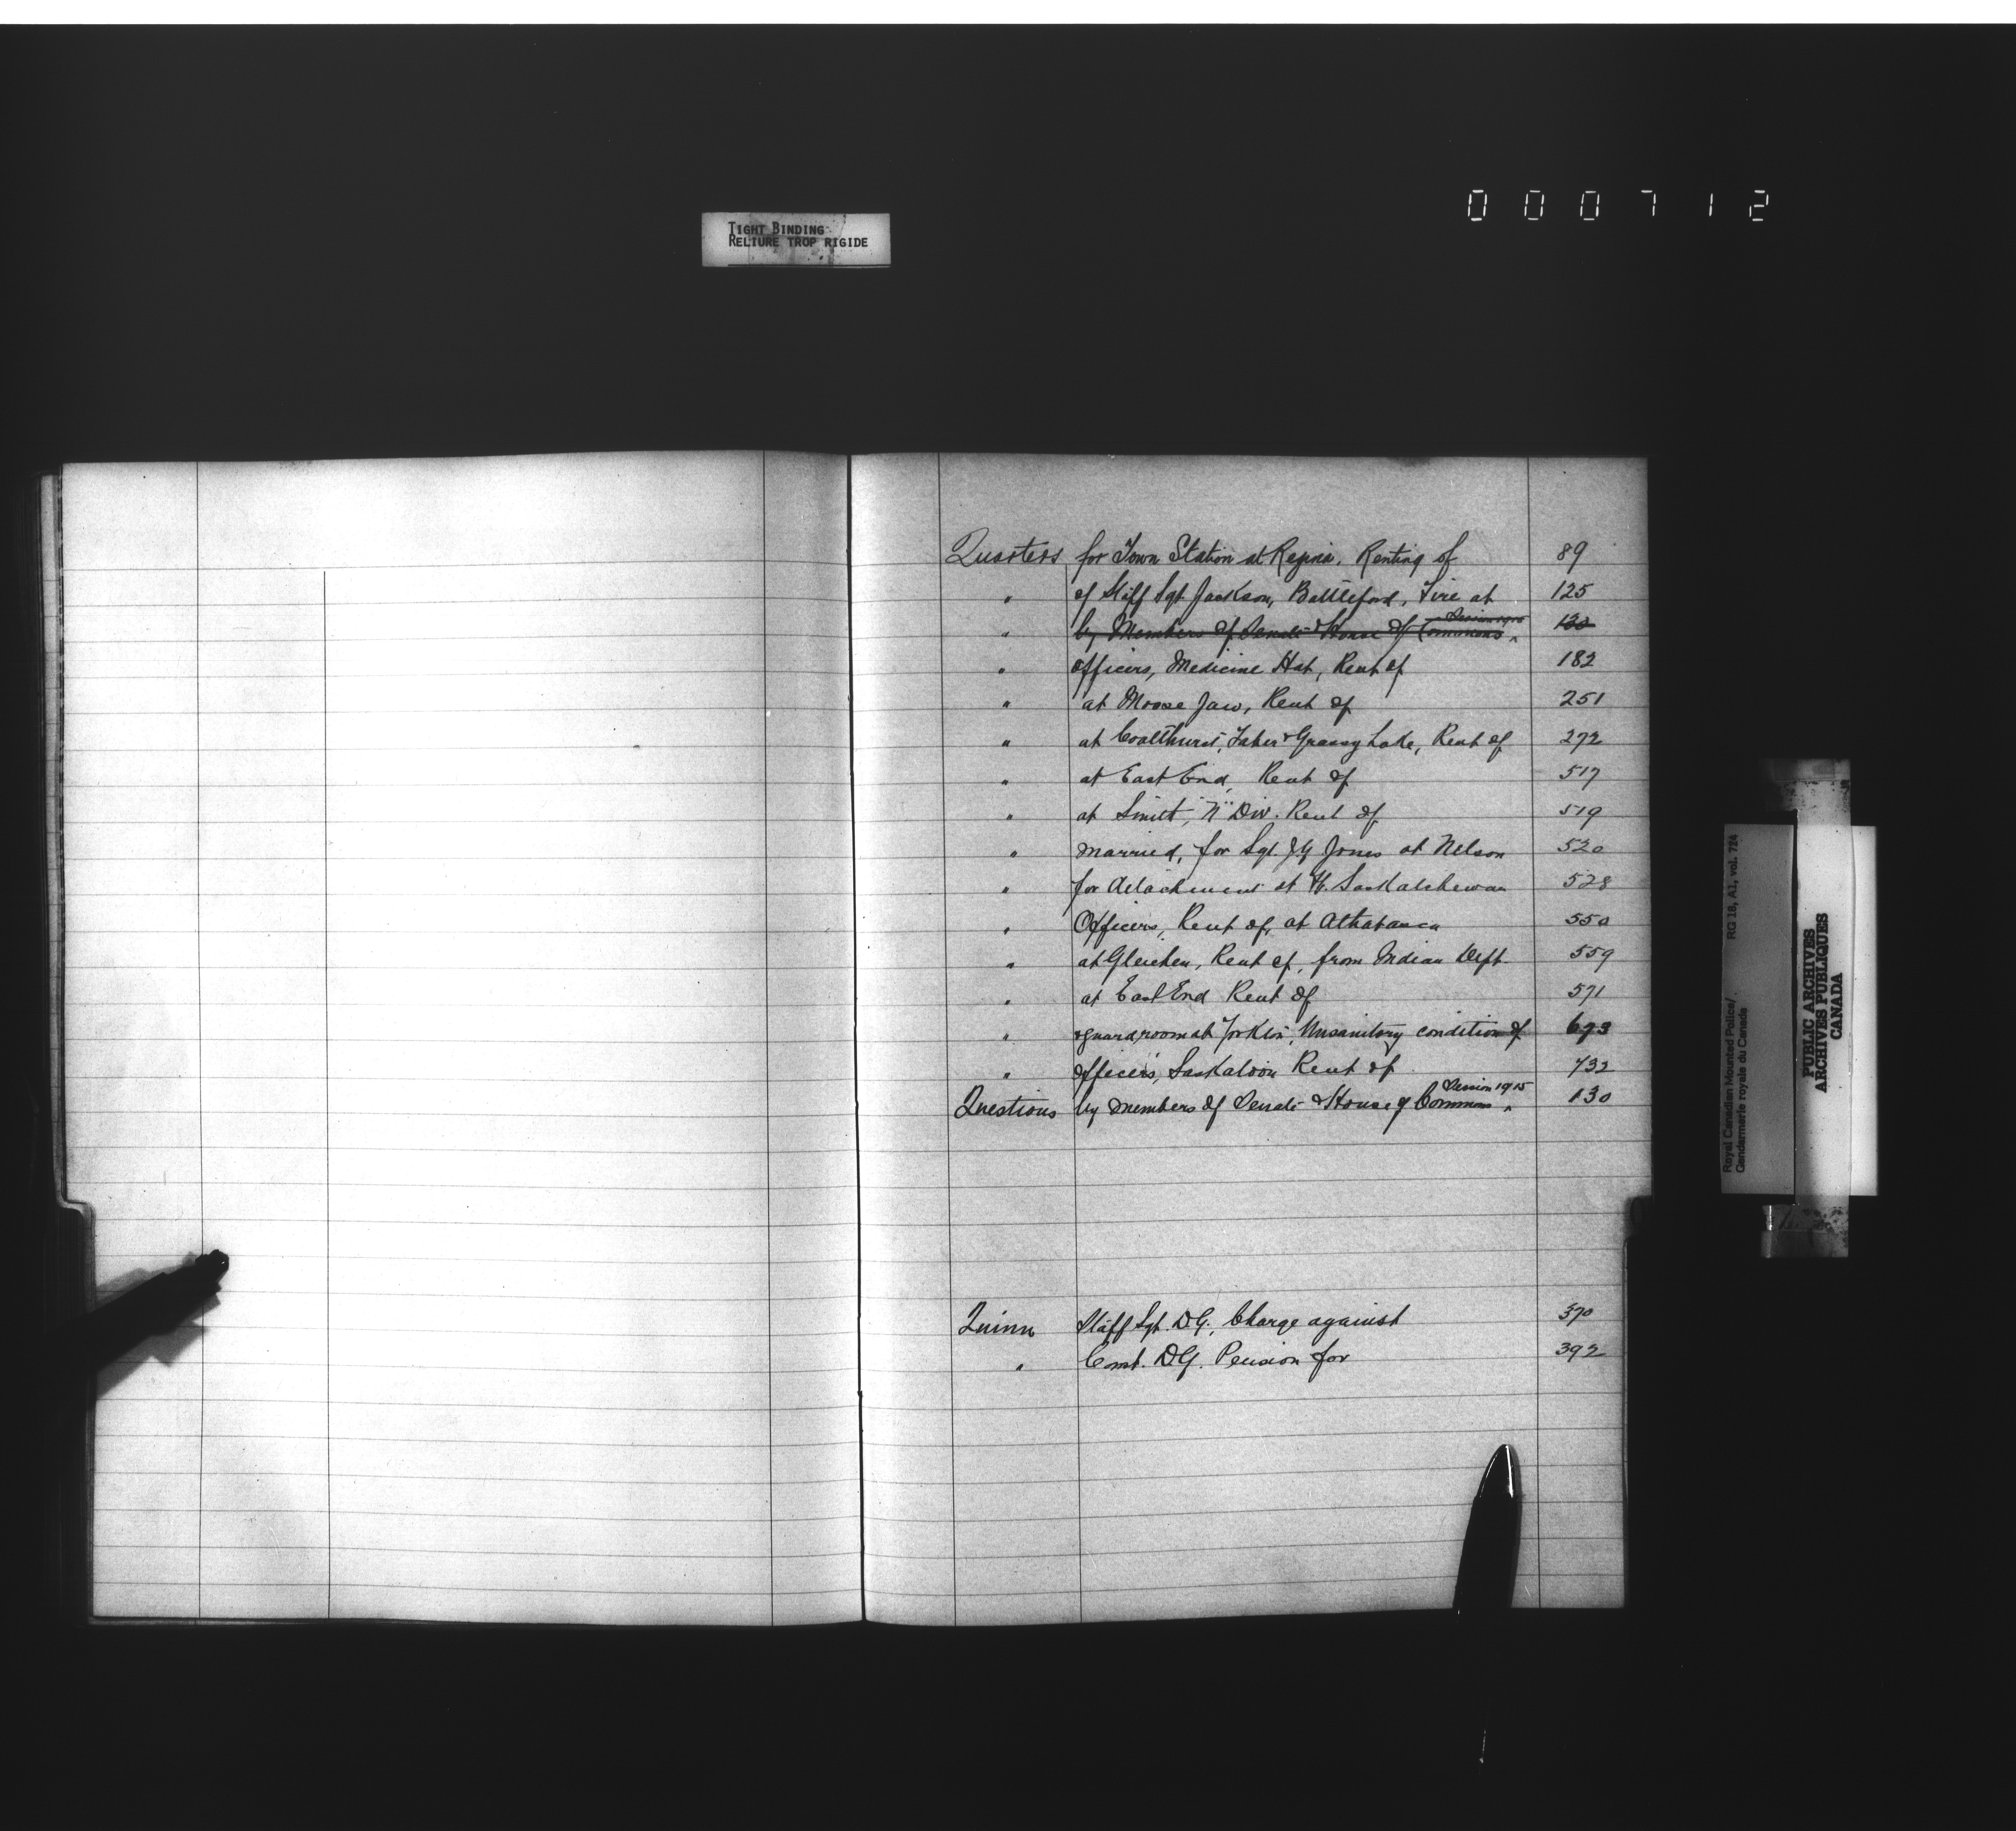 000712
TIGHT BINDING
RELIURE TROP RIGIDE
Quarters for Town Station at Regina. Renting of 89
" of Staff Sgt Jackson, Battleford, Fire at 125
" by Members of Senate & House of Commons ^ Session 1915 130
" officers, Medicine Hat, Rent of 182
" at Moose Jaw, Rent of 251
" at Coalhurst, Taber & Grassy Lake, Rent of 272
" at East End, Rent of 517
" at Smith, "N" Div. Rent of 519
" married, for Sgt. Jones at Nelson 520
" for detachment at Ft. Saskatchewan 528
" Officers, Rent of, at Athabasca 550
" at Gleichen, Rent of, from Indian Dept. 559
" at East End Rent of 571
" & guard room at Yorkton, Unsanitary condition of 673
" officers, Saskatoon Rent of 732
Questions by members of Senate & House of Commons ^ Session 1915 130
Quinn Staff Sgt. D.G., Charge against 370
" Const. D.G. Pension for 392
Royal Canadian Mounted Police/
Gendarmerie royale du Canada
RG 18, A1, vol. 724
PUBLIC ARCHIVES
ARCHIVES PUBLIQUES
CANADA